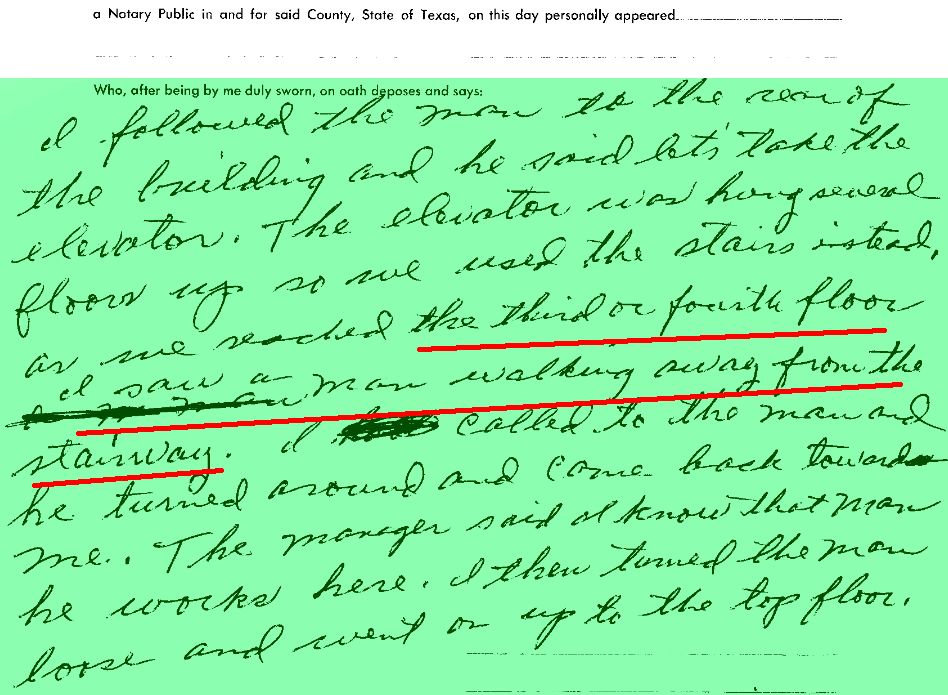 a Notary Public in and for said County, State of Texas, on this day personally appeared
Who, after being by me duly sworn, on oath deposes and says:
I followed the man to the rear of
the building and he said let's take the
elevator. The elevator was hung several
floors up so we used the stairs instead,
as we reached the third or fourth floor
I saw a man walking away from the
stairway. I called to the man and
he turned around and came back toward
me. The manager said I know that man
he works here. I then turned the man
loose and went on up to the top floor.